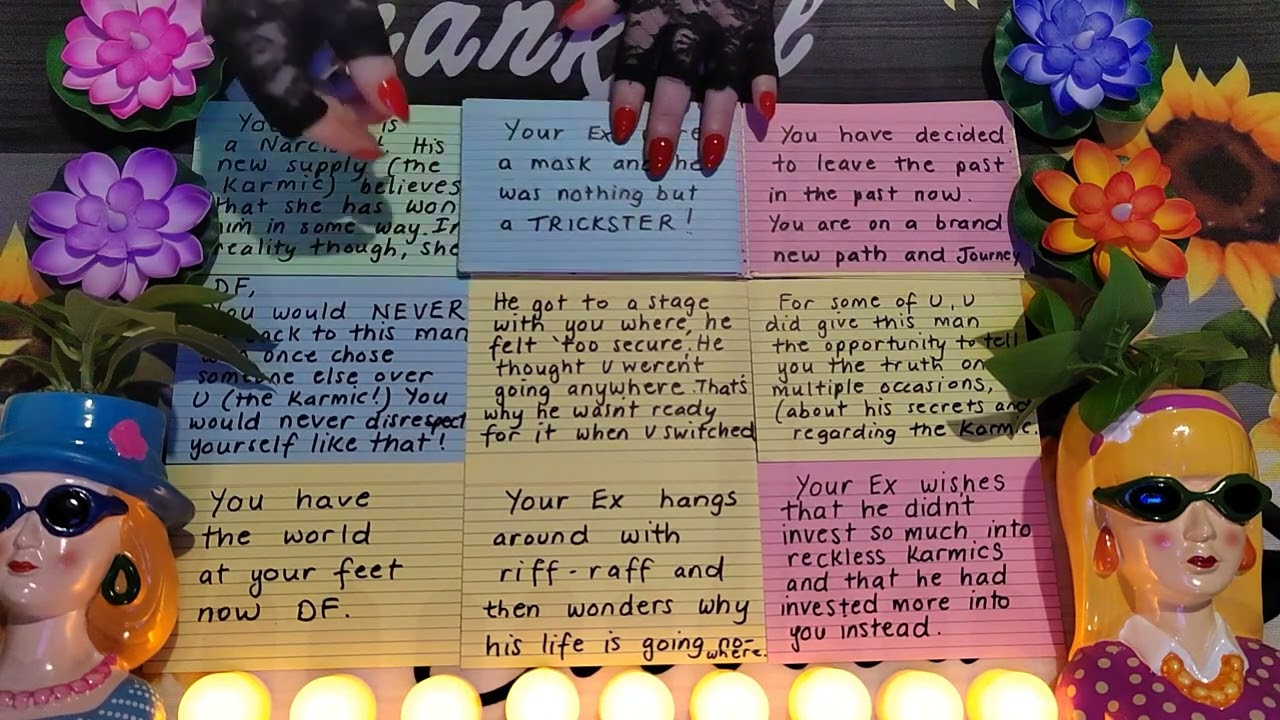 ank l
is
a His
new supply (the
Karmic) believes
that she has won
him in some way. In
reality though, she
Your Ex
a mask and he
was nothing but
a TRICKSTER!
You have decided
to leave the past
in the past now.
You are on a brand
new path and Journey
DF,
You would NEVER
back to this man
who once chose
someone else over
U (the Karmic!) You
would never disrespect
yourself like that!
He got to a stage
with you where, he
felt 'too secure. He
thought U weren't
going anywhere. That's
why he wasnt ready
for it when U switched
For some of U, U
did give this man
the opportunity to tell
you the truth on
multiple occasions,
(about his secrets and
regarding the Karmic.
You have
the world
at your feet
now DF.
Your Ex hangs
around with
riff-raff and
then wonders why
his life is going no-
where.
Your Ex wishes
that he didn't
invest so much into
reckless Karmics
and that he had
invested more into
you instead.